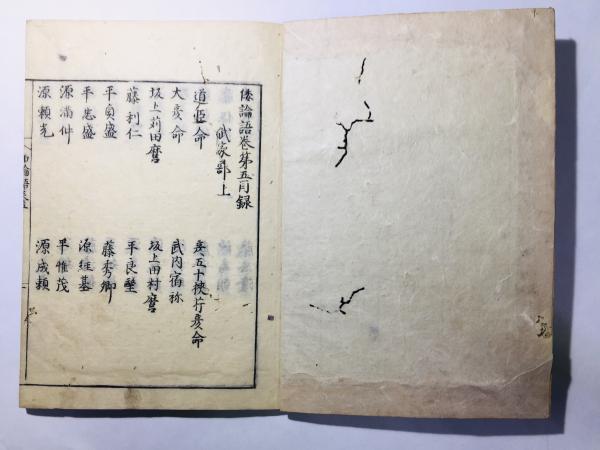 倭論語巻第五目録
武家部上
道臣命
五十狹芹彦命
大彦命
武内宿祢
坂上苅田麿
坂上田村麿
藤利仁
平良
平貞盛
藤秀郷
平忠盛
源経基
源満仲
平惟茂
源頼光
源成頼